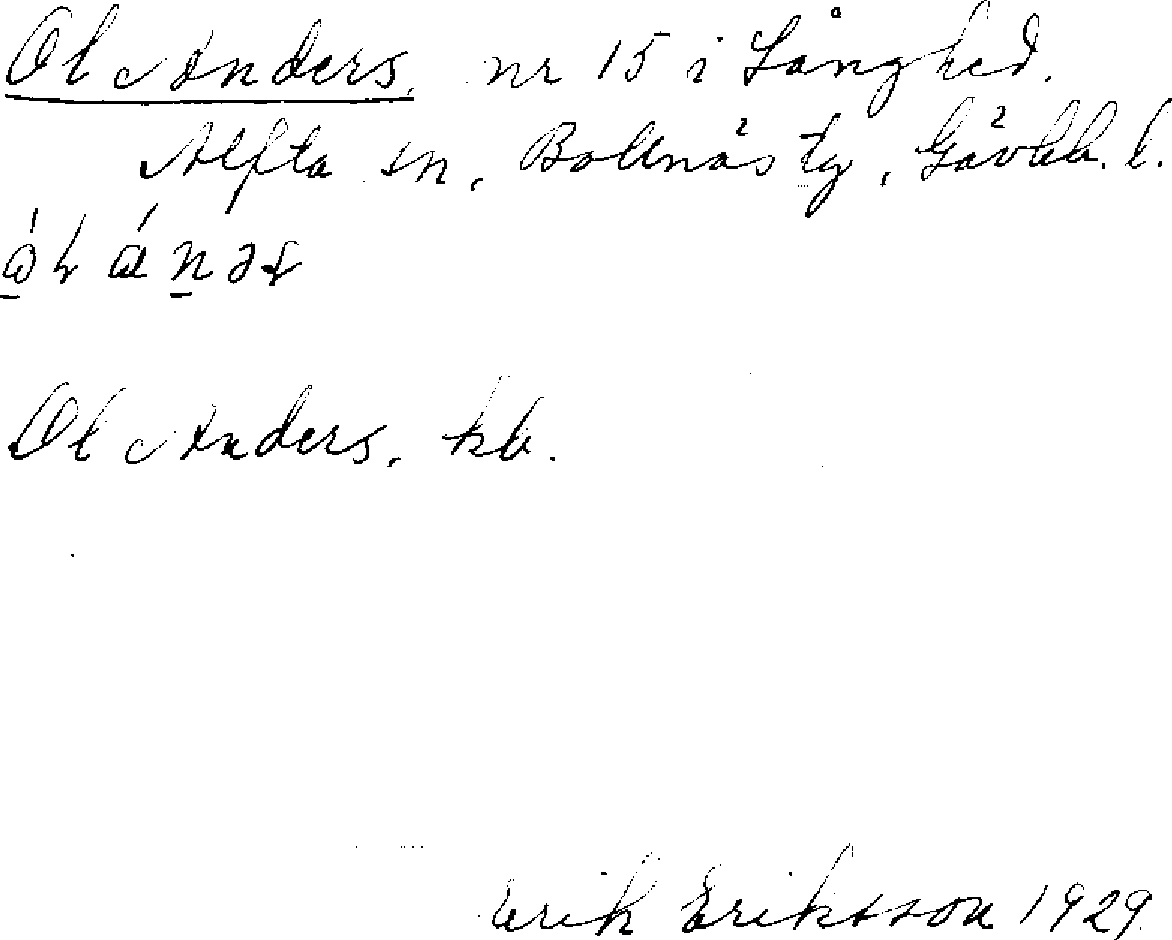 Ol Anders, nr 15 i Långhed.
Alfta sn, Bollnäs tg, Gävlb. l.
Ol Anders, kb.
Erik Eriksson 1929.